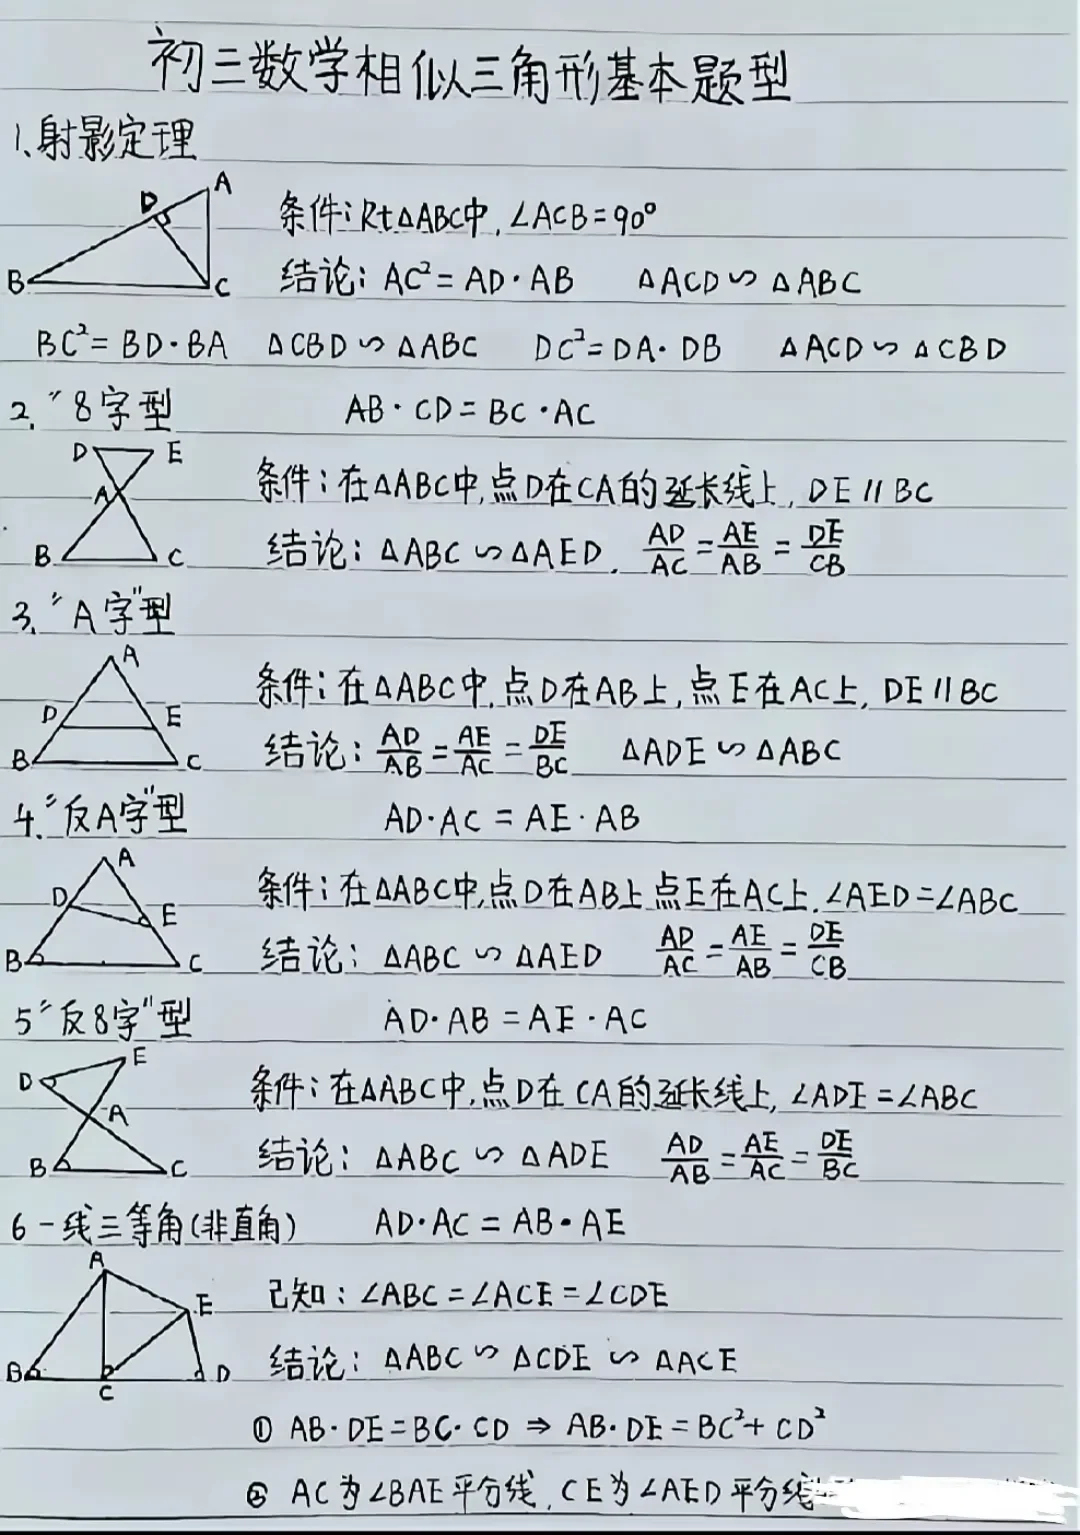 初三数学相似三角形基本题型
1.射影定理
A
D
B
C
条件:Rt△ABC中,∠ACB=90°
结论: AC²=AD·AB △ACD∽△ABC
BC²=BD·BA △CBD∽△ABC DC²=DA·DB △ACD∽△CBD
2."8字型 AB·CD=BC·AC
D E
A
B C
条件:在△ABC中,点D在CA的延长线上,DE∥BC
结论:△ABC∽△AED. AD/AC=AE/AB=DE/CB
3."A字"型
A
D E
B C
条件:在△ABC中,点D在AB上,点E在AC上,DE∥BC
结论:AD/AB=AE/AC=DE/BC △ADE∽△ABC
4."反A字"型 AD·AC=AE·AB
A
D E
B C
条件:在△ABC中,点D在AB上点E在AC上.∠AED=∠ABC
结论:△ABC∽△AED AD/AC=AE/AB=DE/CB
5"反8字"型 AD·AB=AE·AC
E
D
A
B C
条件:在△ABC中,点D在CA的延长线上,∠ADE=∠ABC
结论:△ABC∽△ADE AD/AB=AE/AC=DE/BC
6一线三等角(非直角) AD·AC=AB·AE
A
E
B C D
已知:∠ABC=∠ACE=∠CDE
结论:△ABC∽△CDE∽△ACE
① AB·DE=BC·CD⇒AB·DE=BC²+CD²
② AC为∠BAE平分线,CE为∠AED平分线